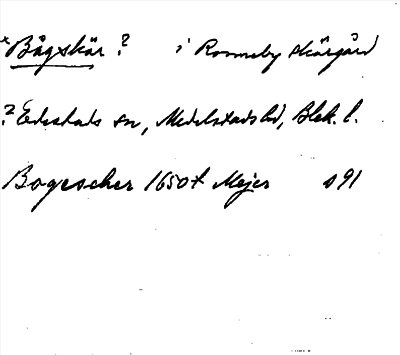 *Bågskär? i Ronneby skärgård
? Edestads sn, Medelstads hd, Blek. l.
Bogescher 1650t Mejer s 91